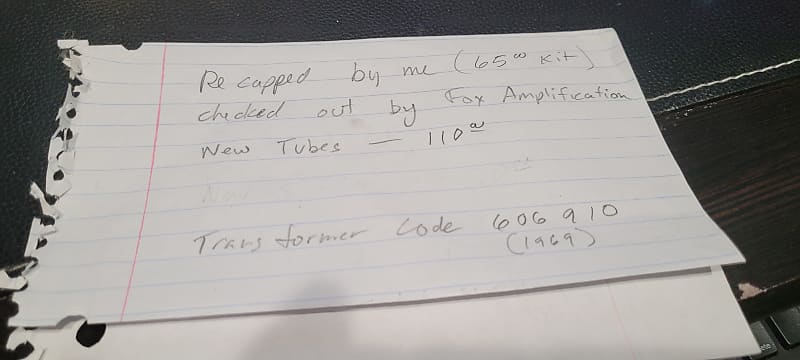 Re capped by me (65⁰⁰ Kit)
checked out by Fox Amplification
New Tubes — 110⁰⁰
Transformer Code 606 910
(1969)